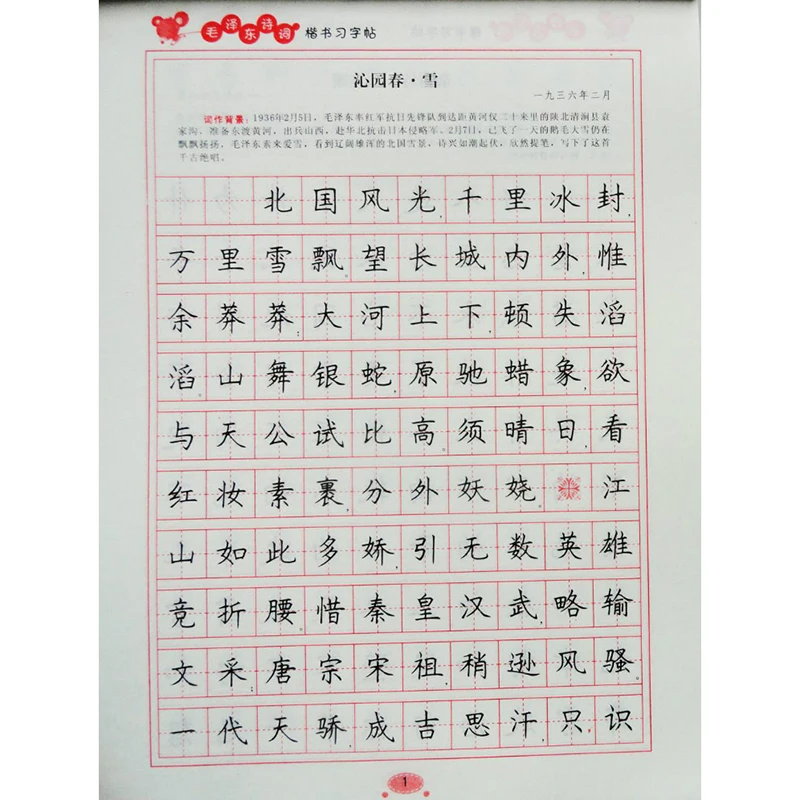 毛泽东诗词 楷书习字帖
沁园春·雪
一九三六年二月
词作背景：1936年2月5日，毛泽东率红军抗日先锋队到达距黄河仅二十来里的陕北清涧县袁
家沟，准备东渡黄河，出兵山西，赴华北抗击日本侵略军。2月7日，已飞了一天的鹅毛大雪仍在
飘飘扬扬，毛泽东素来爱雪，看到辽阔雄浑的北国雪景，诗兴如潮起伏，欣然提笔，写下了这首
千古绝唱。
北国风光千里冰封
万里雪飘望长城内外惟
余莽莽大河上下顿失滔
滔山舞银蛇原驰蜡象欲
与天公试比高须晴日看
红妆素裹分外妖娆江
山如此多娇引无数英雄
竞折腰惜秦皇汉武略输
文采唐宗宋祖稍逊风骚
一代天骄成吉思汗只识
1